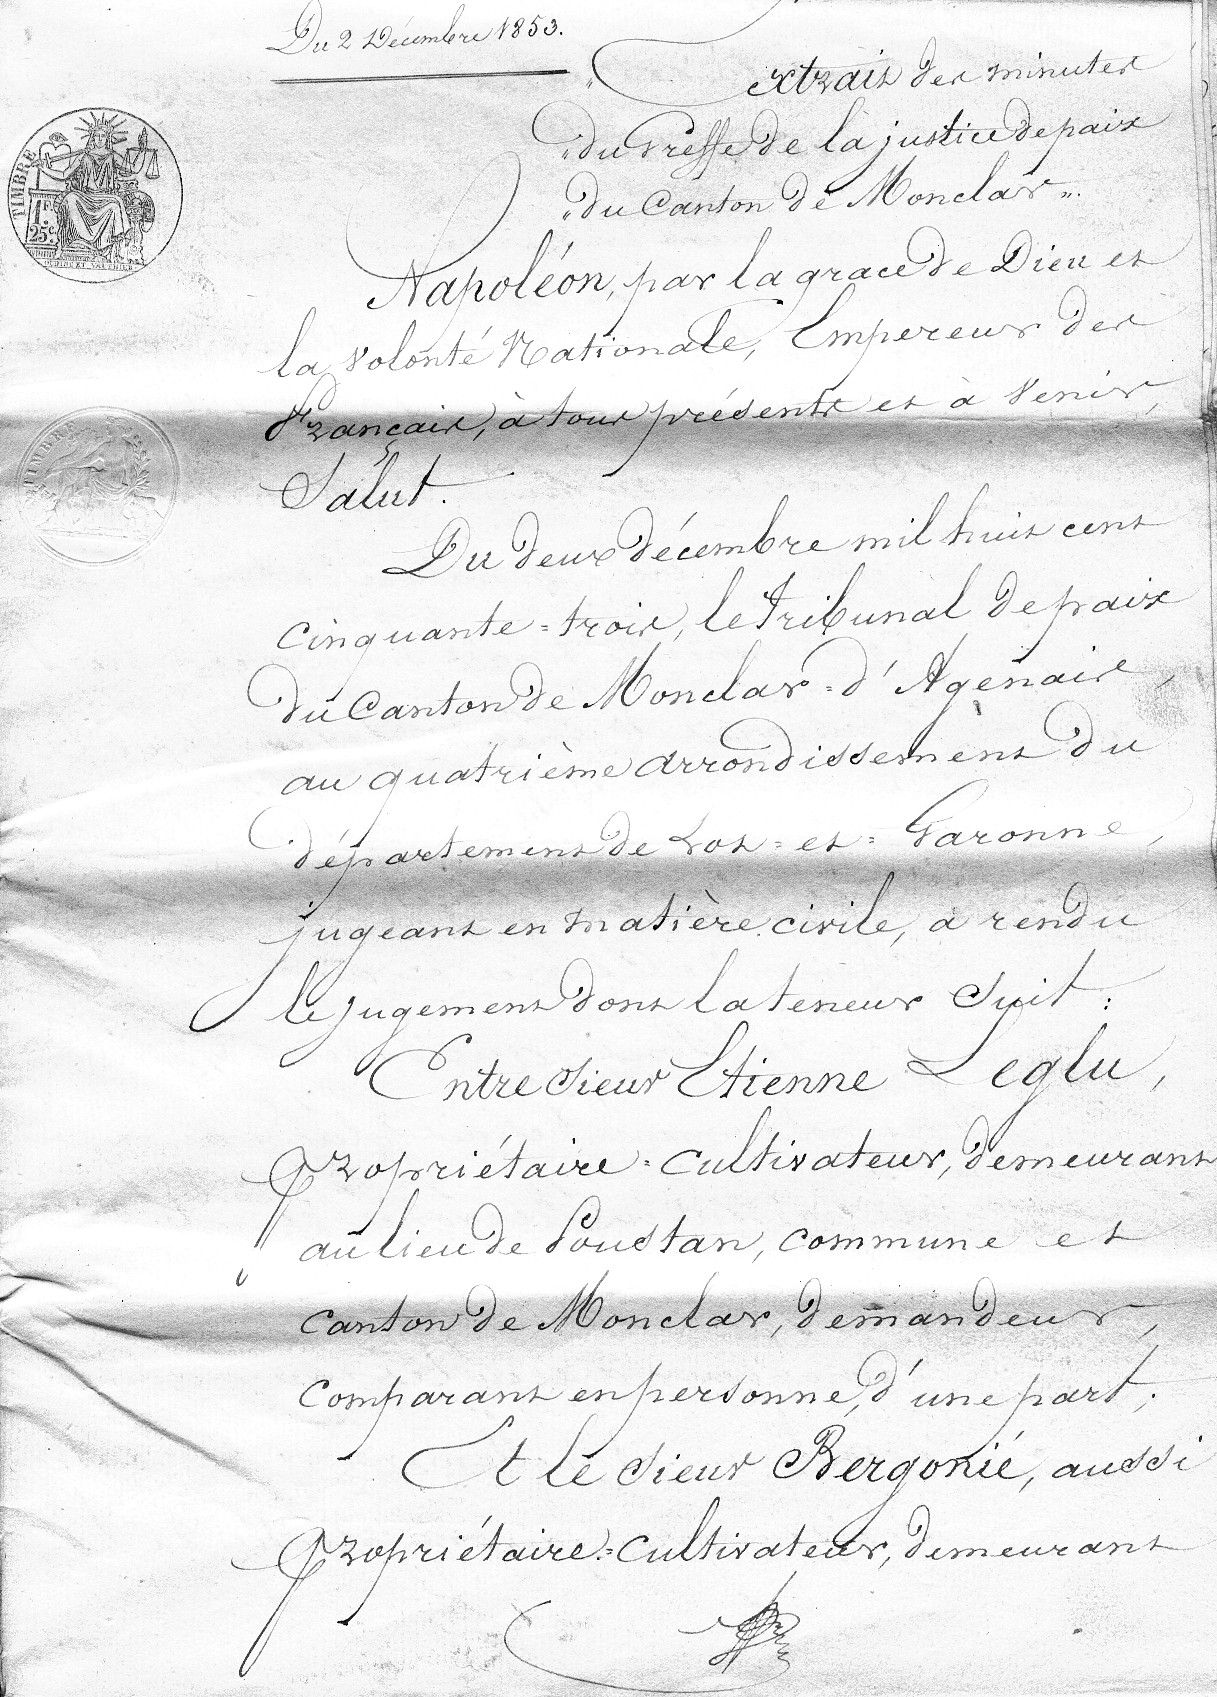 Du 2 Décembre 1853.
Extrait des minutes
"du Greffe de la justice de paix
"du Canton de Monclar".
TIMBRE
1 F.
25 c.
OUDINÉ ET VAUTHIER
Napoléon, par la grace de Dieu et
la volonté Nationale, Empereur des
Français, à tous présents et à venir,
Salut.
TIMBRE
Du deux décembre mil huit cent
cinquante=trois, le tribunal de paix
du Canton de Monclar=d'Agenais,
au quatrième arrondissement du
département de Lot=et=Garonne,
jugeant en matière civile, a rendu
le jugement dont la teneur suit:
Entre Sieur Etienne Leglu,
propriétaire=cultivateur, demeurant
au lieu de Poustan, commune et
canton de Monclar, demandeur,
comparant en personne, d'une part;
Et le sieur Bergonié, aussi
propriétaire=cultivateur, demeurant